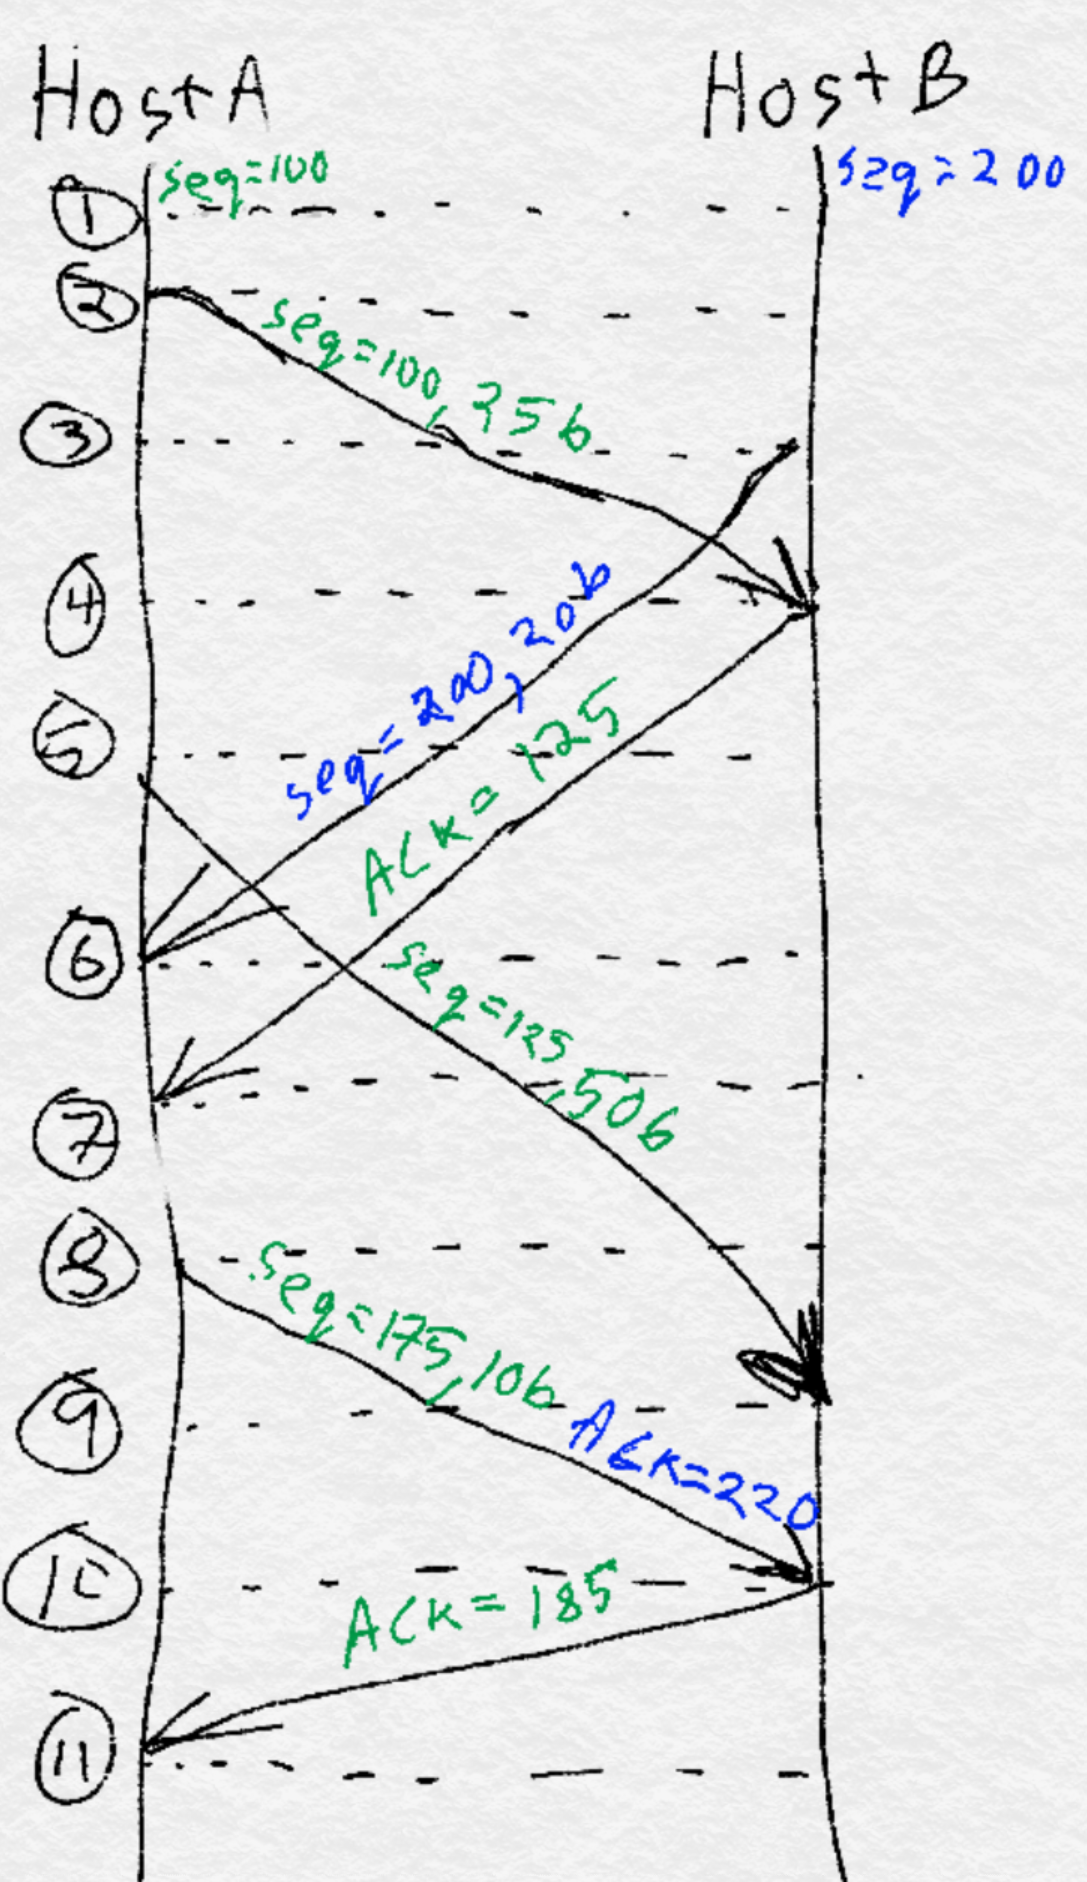 Host A
Host B
seq=100
seq=200
1
2
seq=100, 25b
3
4
seq=200, 20b
5
ACK=125
6
seq=125, 50b
7
8
seq=175, 10b ACK=220
9
10
ACK=185
11